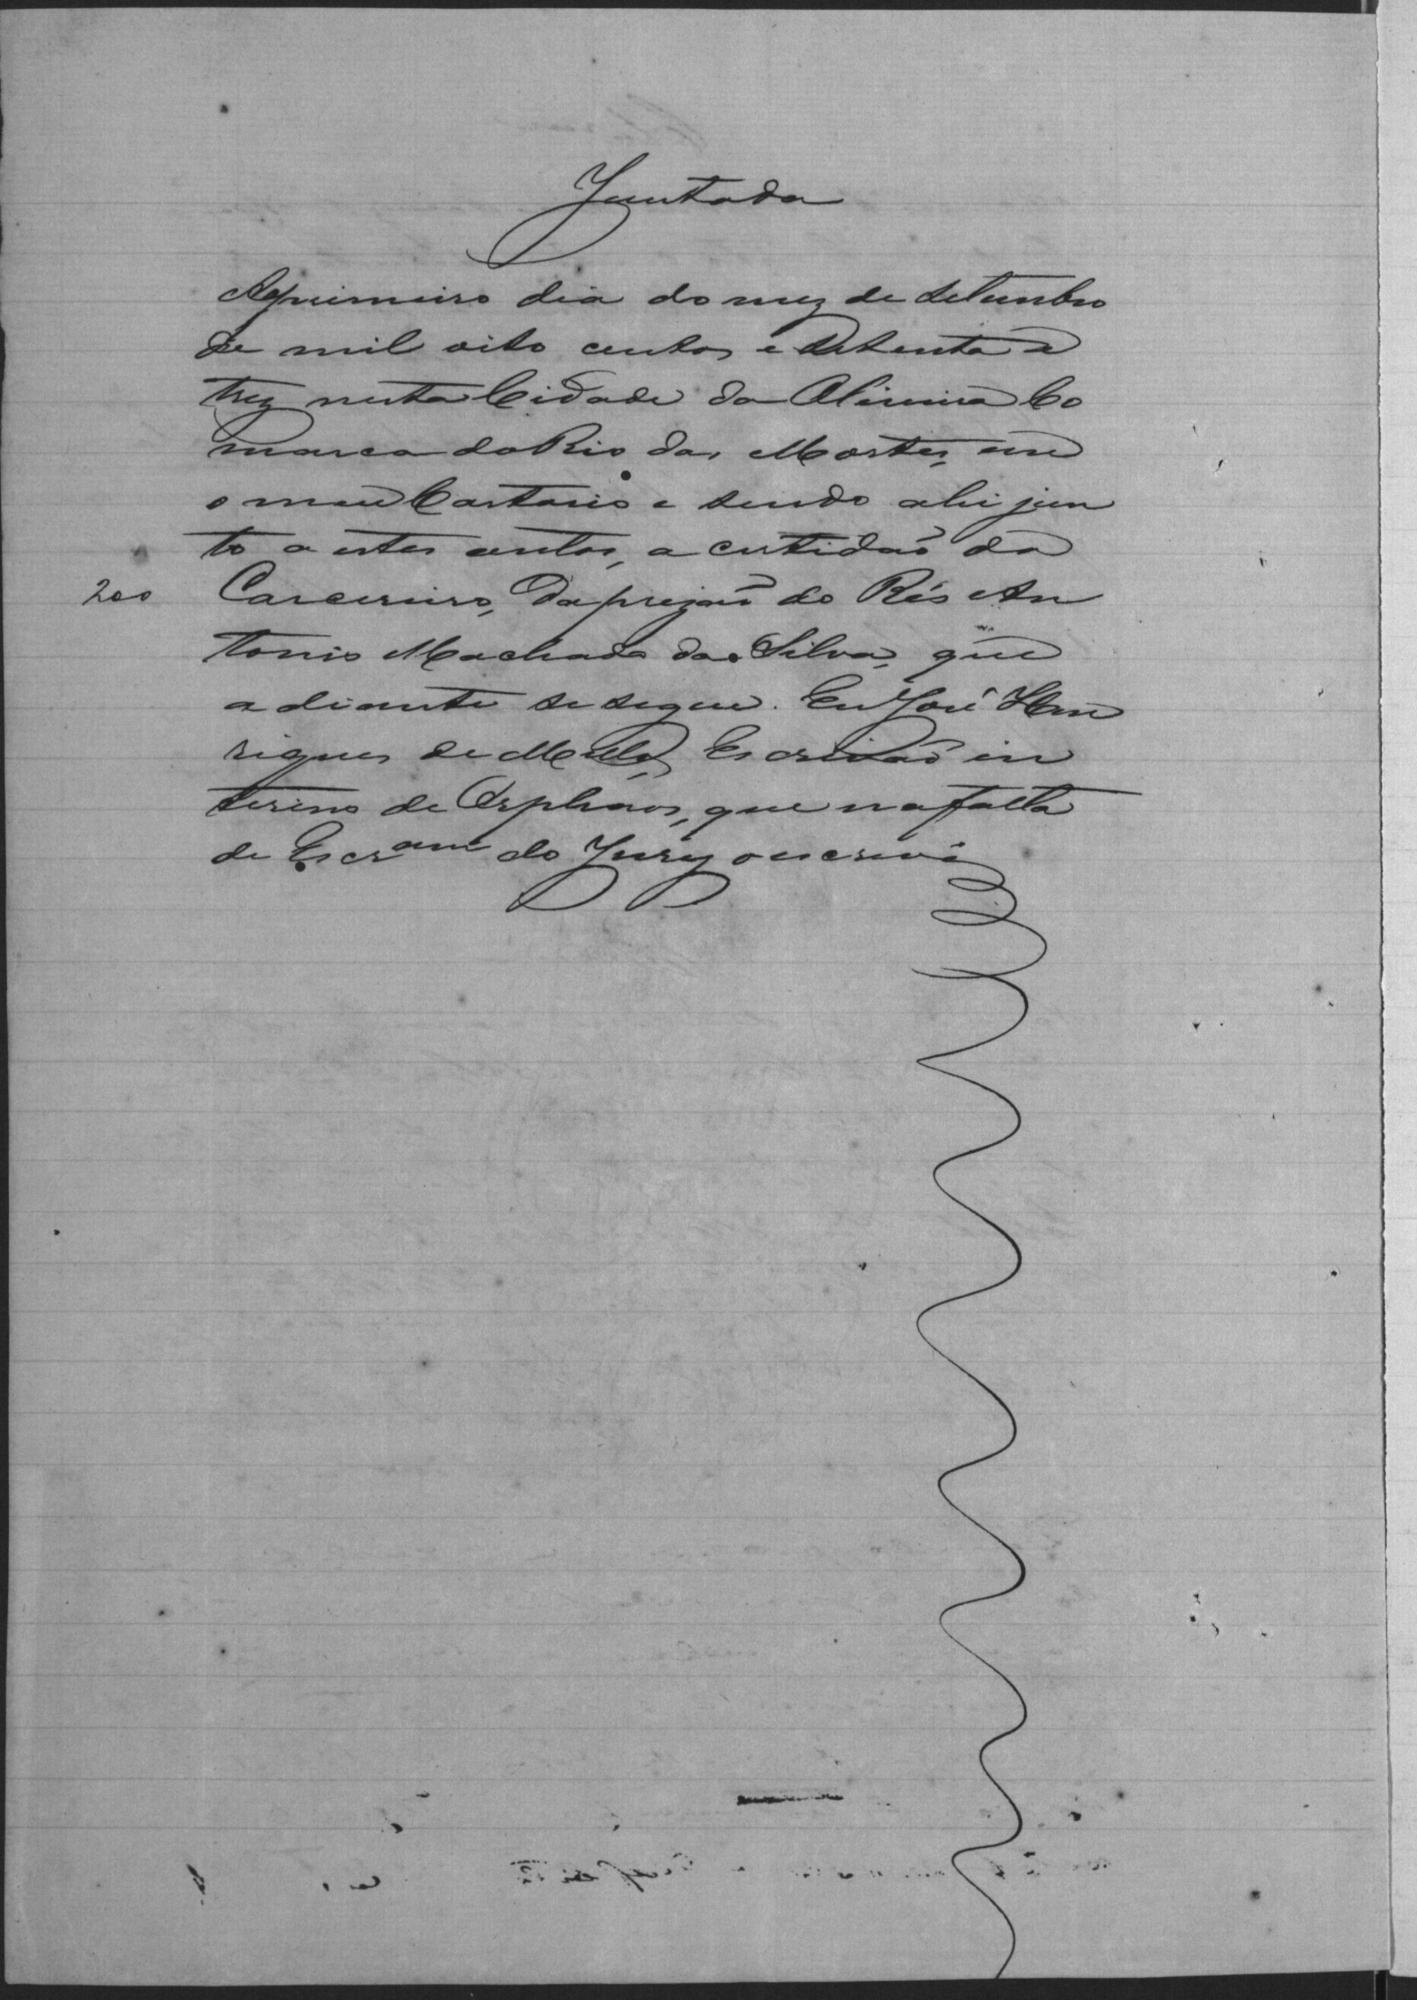 Juntada
Aprimeiro dia do mez de Setembro
de mil oito centos e Setenta e
trez nesta Cidade da Oliveira Co
marca do Rio das Mortes em
o meu Cartorio e sendo ahi jun
to a estes autos, a certidaõ do
200 Carcereiro, da prizaõ do Réo An
tonio Machado da Silva, que
adiante se segue. Eu José Hen
riques de Mello, Escrivaõ in
terino de Orphaos, que na falta
de Escram do Jury o escrevi